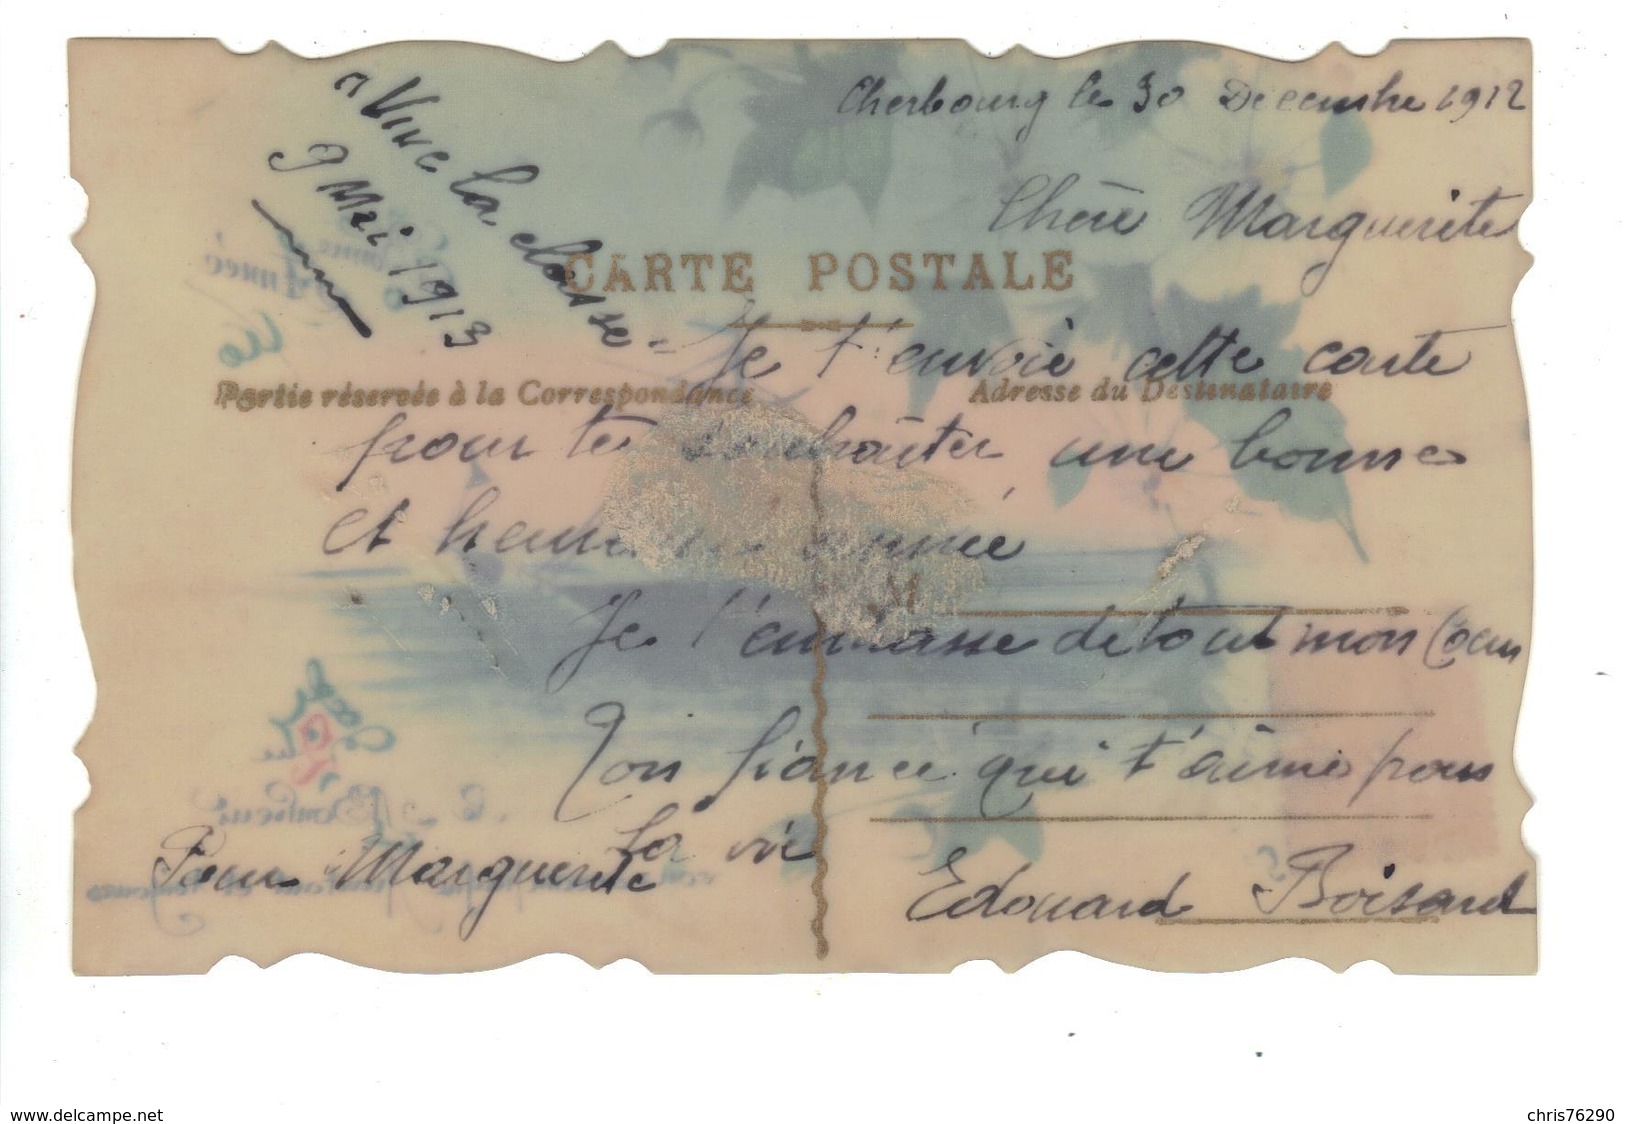 Cherbourg le 30 Decembre 1912
Vive la classe
9 Mai 1913
Chère Marguerite
CARTE POSTALE
Je t'envoie cette carte
Partie réservée à la Correspondance
Adresse du Destinataire
pour te souhaiter une bonne
et heureuse année
M
Je t'embrasse de tout mon Coeur
Ton fiancé qui t'aime pour
la vie
Pour Marguerite
Edouard Boisard
www.delcampe.net
chris76290